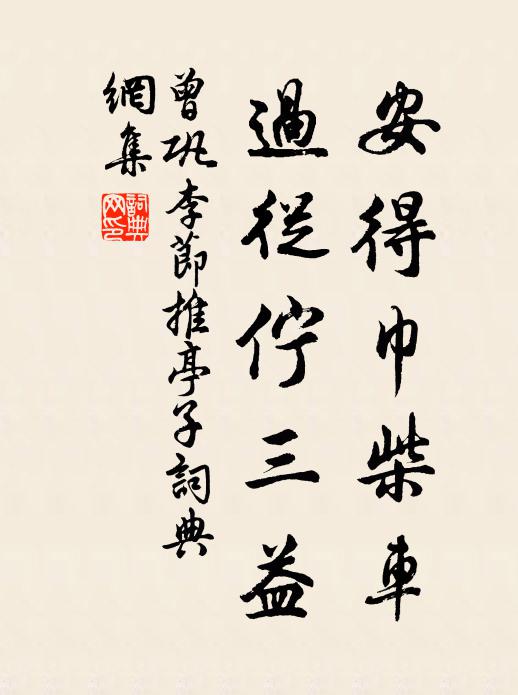 安得巾柴車
過從佇三益
曾巩李節推亭子詞典
網集
詞典
网印